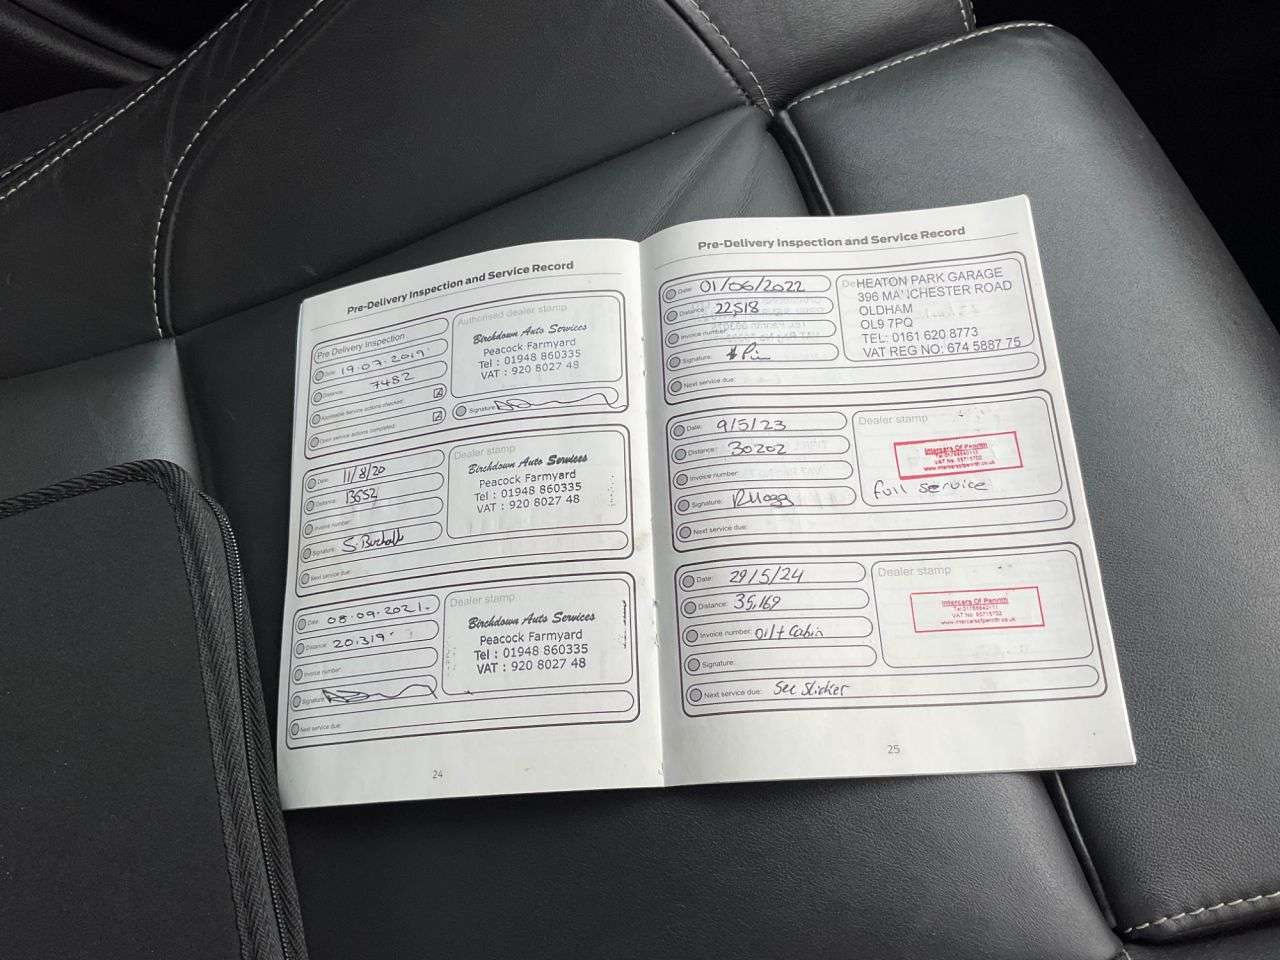 Pre-Delivery Inspection and Service Record
Pre Delivery Inspection
Date: 19.07.2019
Distance: 7482
Applicable Service actions checked
Open service actions completed
Authorised dealer stamp
Birchdown Auto Services
Peacock Farmyard
Tel : 01948 860335
VAT : 920 8027 48
Signature:
Date: 11/8/20
Distance:
Invoice number:
Signature:
Next service due:
Dealer stamp
Birchdown Auto Services
Peacock Farmyard
Tel : 01948 860335
VAT : 920 8027 48
Date: 08.09.2021.
Distance: 20,319
Invoice number:
Signature:
Next service due:
Dealer stamp
Birchdown Auto Services
Peacock Farmyard
Tel : 01948 860335
VAT : 920 8027 48
24
Pre-Delivery Inspection and Service Record
Date: 01/06/2022
Distance: 22518
Invoice number:
Signature:
Next service due:
HEATON PARK GARAGE
396 MANCHESTER ROAD
OLDHAM
OL9 7PQ
TEL: 0161 620 8773
VAT REG NO: 674 5887 75
Date: 9/5/23
Distance: 30202
Invoice number:
Signature:
Next service due:
Dealer stamp
Intercars Of Penrith
www.intercarsofpenrith.co.uk
full service
Date: 29/5/24
Distance: 35,169
Invoice number: oil + Cabin
Signature:
Next service due: See Sticker
Dealer stamp
Intercars Of Penrith
www.intercarsofpenrith.co.uk
25